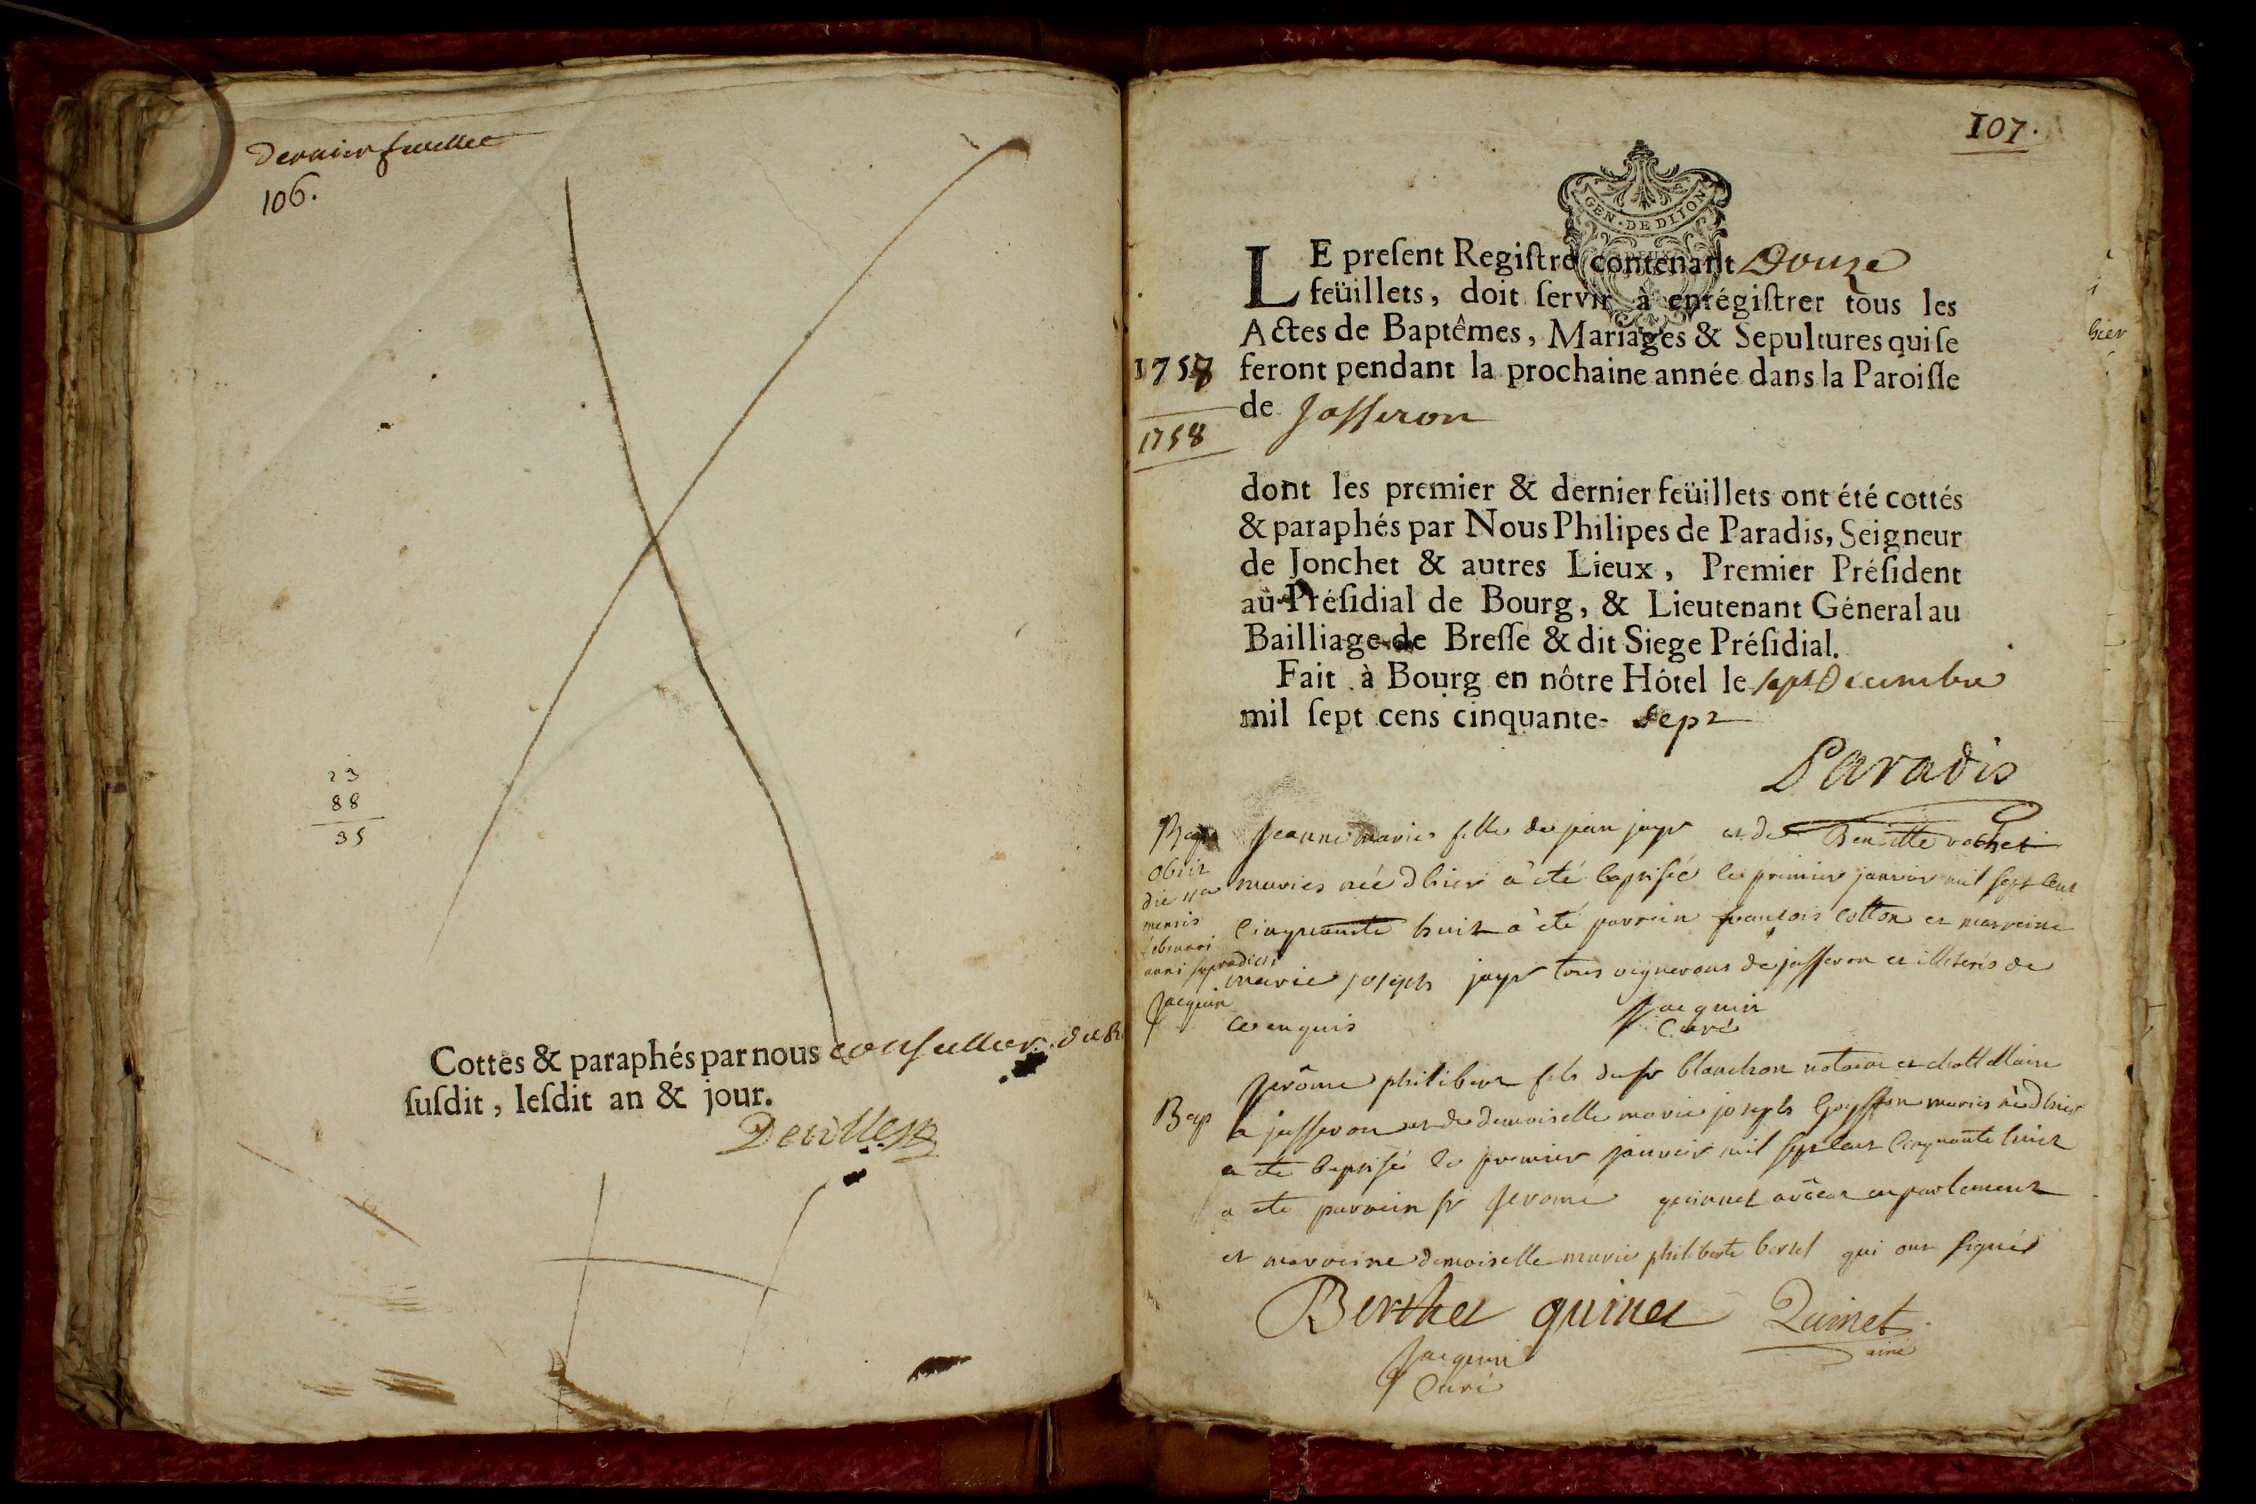 Dernier feuillet
106.
23
88
35
Cottés & paraphés par nous conseiller
susdit, lesdit an & jour.
107.
GEN·DE DIJON
LE preſent Regiſtre contenant Douze
feüillets, doit ſervir à enrégiſtrer tous les
Actes de Baptêmes, Mariages & Sepultures qui ſe
1757
feront pendant la prochaine année dans la Paroiſſe
de Jasseron
1758
dont les premier & dernier feüillets ont été cottés
& paraphés par Nous Philipes de Paradis, Seigneur
de Jonchet & autres Lieux, Premier Préſident
au Préſidial de Bourg, & Lieutenant Géneral au
Bailliage de Breſſe & dit Siege Préſidial.
Fait à Bourg en nôtre Hôtel le sept Decembre
mil ſept cens cinquante- sept
Paradis
Bap
Obiit
die
mensis
februari
anni supradicti
Jacquin
Jeanne marie fille de jean jayr et de Benoitte vachet
mariés née d'hier a été baptisée le premier janvier mil sept cent
cinquante huit a été parrein françois cotton et marreine
marie joseph jayr tous vignerons de jasseron et illiterés de
ce enquis
Jacquin
Curé
Bap
Jerôme philibert fils de sr blanchon notaire et chattellain
a jasseron et de demoiselle marie joseph mariés né d'hier
a été baptisé le premier janvier mil sept cent cinquante huit
a été parrein sr Jerome quinet avôcat en parlement
et marreine demoiselle marie philiberte bertet qui ont signés
Berthet quinet Quinet
ainé
Jacquin
Curé
hier